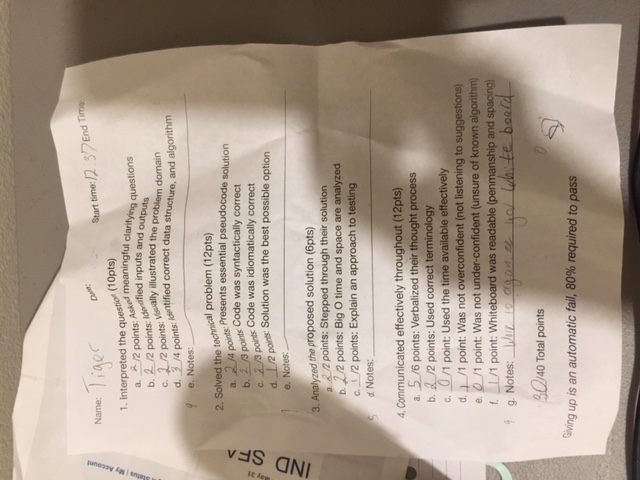 Status | My Account
May 31
IND SEA
Name: Tiger Date: Start time: 12:37 End Time
1. Interpreted the question (10pts)
a. 2/2 points: Asked meaningful clarifying questions
b. 2/2 points: Identified inputs and outputs
c. 2/2 points: Visually illustrated the problem domain
d. 3/4 points: Identified correct data structure, and algorithm
9 e. Notes:
2. Solved the technical problem (12pts)
a. 2/4 points: Presents essential pseudocode solution
b. 2/3 points: Code was syntactically correct
c. 2/3 points: Code was idiomatically correct
d. 1/2 points: Solution was the best possible option
e. Notes:
3. Analyzed the proposed solution (6pts)
a. 2/2 points: Stepped through their solution
b. 2/2 points: Big O time and space are analyzed
c. 1/2 points: Explain an approach to testing
5 d. Notes:
4. Communicated effectively throughout (12pts)
a. 5/6 points: Verbalized their thought process
b. 2/2 points: Used correct terminology
c. 0/1 point: Used the time available effectively
d. 1/1 point: Was not overconfident (not listening to suggestions)
e. 0/1 point: Was not under-confident (unsure of known algorithm)
f. 1/1 point: Whiteboard was readable (penmanship and spacing)
9 g. Notes: to organize white board
30/40 Total points
Giving up is an automatic fail, 80% required to pass